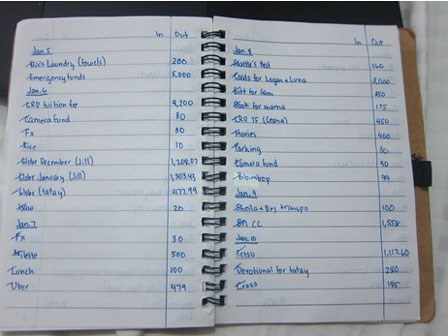 In Out
Jan. 5
Laundry (towels) 200
Emergency funds 5,000
Jan. 6
tuition fee 4,200
Camera fund 80
Fx 30
Rice 10
Globe December (Jill) 1,208.07
Globe January (Jill) 1,303.43
Globe (tatay) 477.99
20
Jan. 7
Fx 30
500
Lunch 100
Uber 479
In Out
Jan. 8
Mattie's Best 160
for Logan & Luna 2,000
Gift for 150
Book for mama 175
450
Movies 400
Parking 30
Camera fund 90
99
Jan. 9
Sheila & Dry transpo 100
CC 1,558
Jan. 10
Tetsu 1,117.60
Devotional for tatay 280
Cross 185